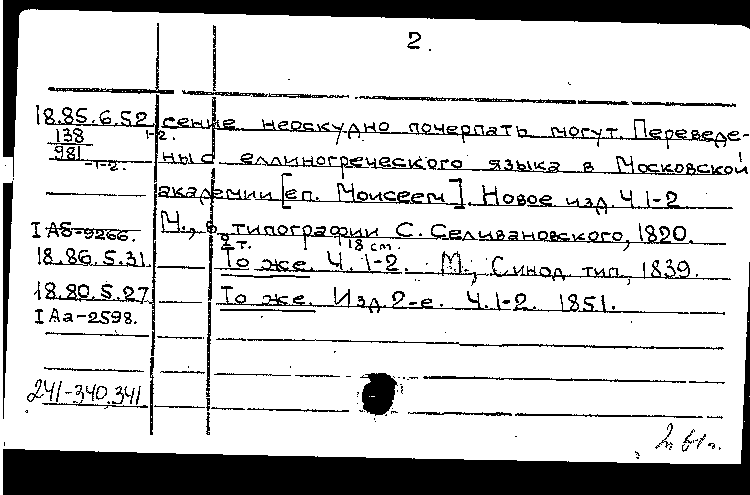 2.
18.85.6.52 сение неоскудно почерпать могут. Переведе-
138 1-2.
981 -1-2. ны с еллиногреческого языка в Московской
академии [еп. Моисеем]. Новое изд. Ч.1-2
I АБ-9266. М., в типографии С. Селивановского, 1820.
2 т. 18 см.
18.86.5.31 То же. Ч. 1-2. М., Синод. тип., 1839.
18.80.5.27 То же. Изд. 2-е. Ч.1-2. 1851.
I Аа-2598.
241-340,341